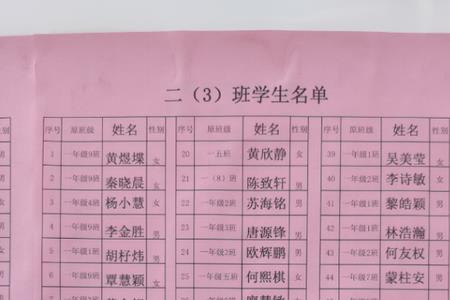 二（3）班学生名单
性别 序号 原班级 姓名 性别 序号 原班级 姓名 性别 序号 原班级 姓名
男 1 一年级9班 黄煜堞 女 20 一五班 黄欣静 女 39 一年级1班 吴美莹 女
男 2 一年级9班 秦晓晨 女 21 一（8）班 陈致轩 男 40 一年级2班 李诗敏 女
男 3 一年级4班 杨小慧 女 22 一年级2班 苏海铭 男 41 一年级1班 黎皓颖 男
男 4 一年级9班 李金胜 男 23 一年级3班 唐源锋 男 42 一年级1班 林浩瀚 男
男 5 一年级1班 胡杍炜 男 24 一年级2班 欧辉鹏 男 43 一年级1班 何友权 男
女 6 一年级2班 覃慧颖 女 25 一年级五班 何熙棋 女 44 一年级2班 蒙柱安 男